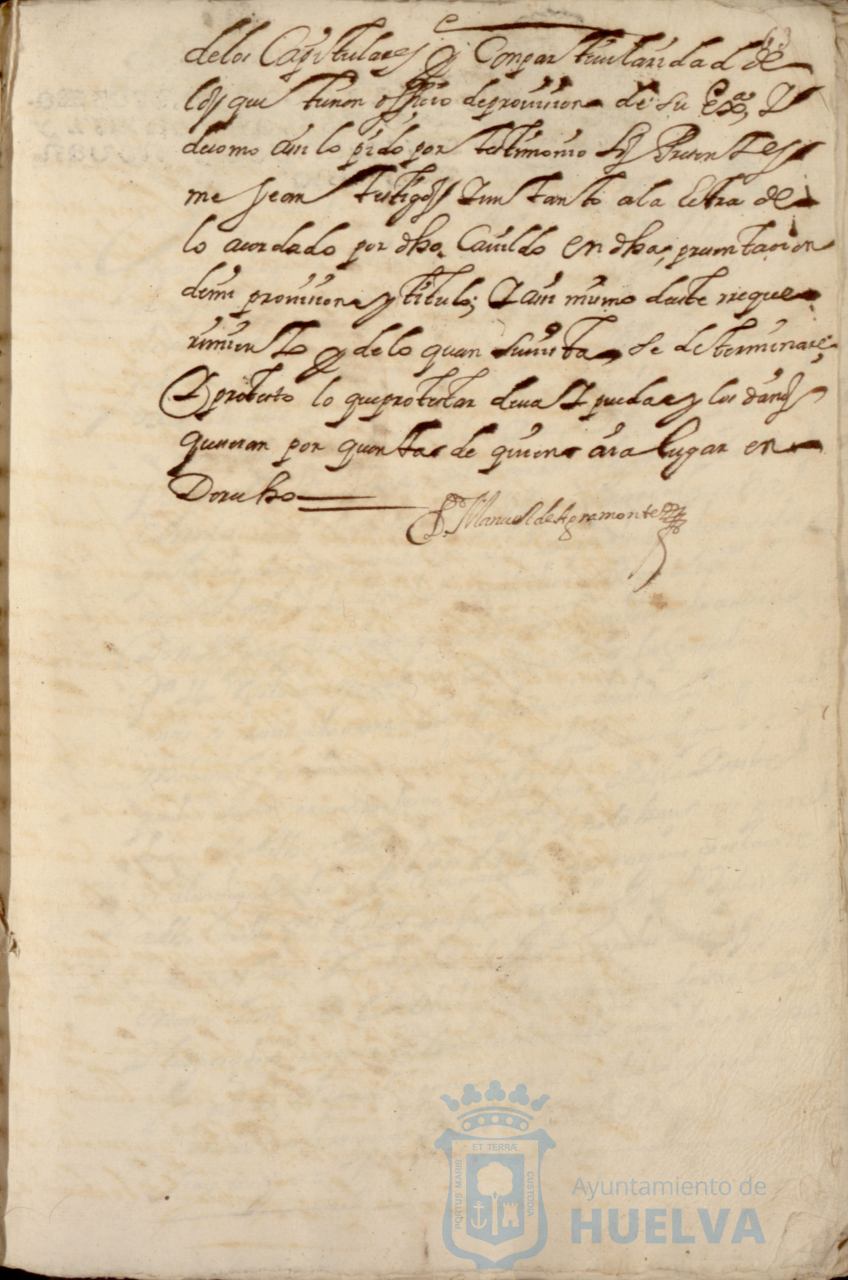 de los Capitulares y Con particularidad de
los que tienen offiçio de provision de su Exª, Y
de como assi lo pido por testimonio los Presentes
me sean testigos Y un tanto a la letra de
lo acordado por dho. Cavildo en dha, presentacion
de mi provision y titulo; Y assi mismo deste rreque
rimiento y de lo que en su vista se determinare
Y protesto lo que protestar deva Y pueda y los daños
que seran por quenta de quien aia lugar en
Derecho
D. Manuel de Agramonte
63
PORTUS MARIS
ET TERRÆ
CUSTODIA
Ayuntamiento de
HUELVA